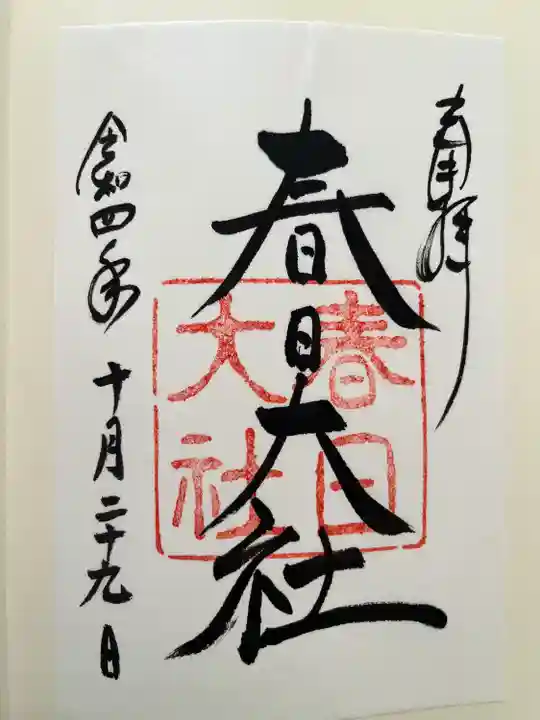 奉拝
春日大社
春日大社
令和四年 十月二十九日